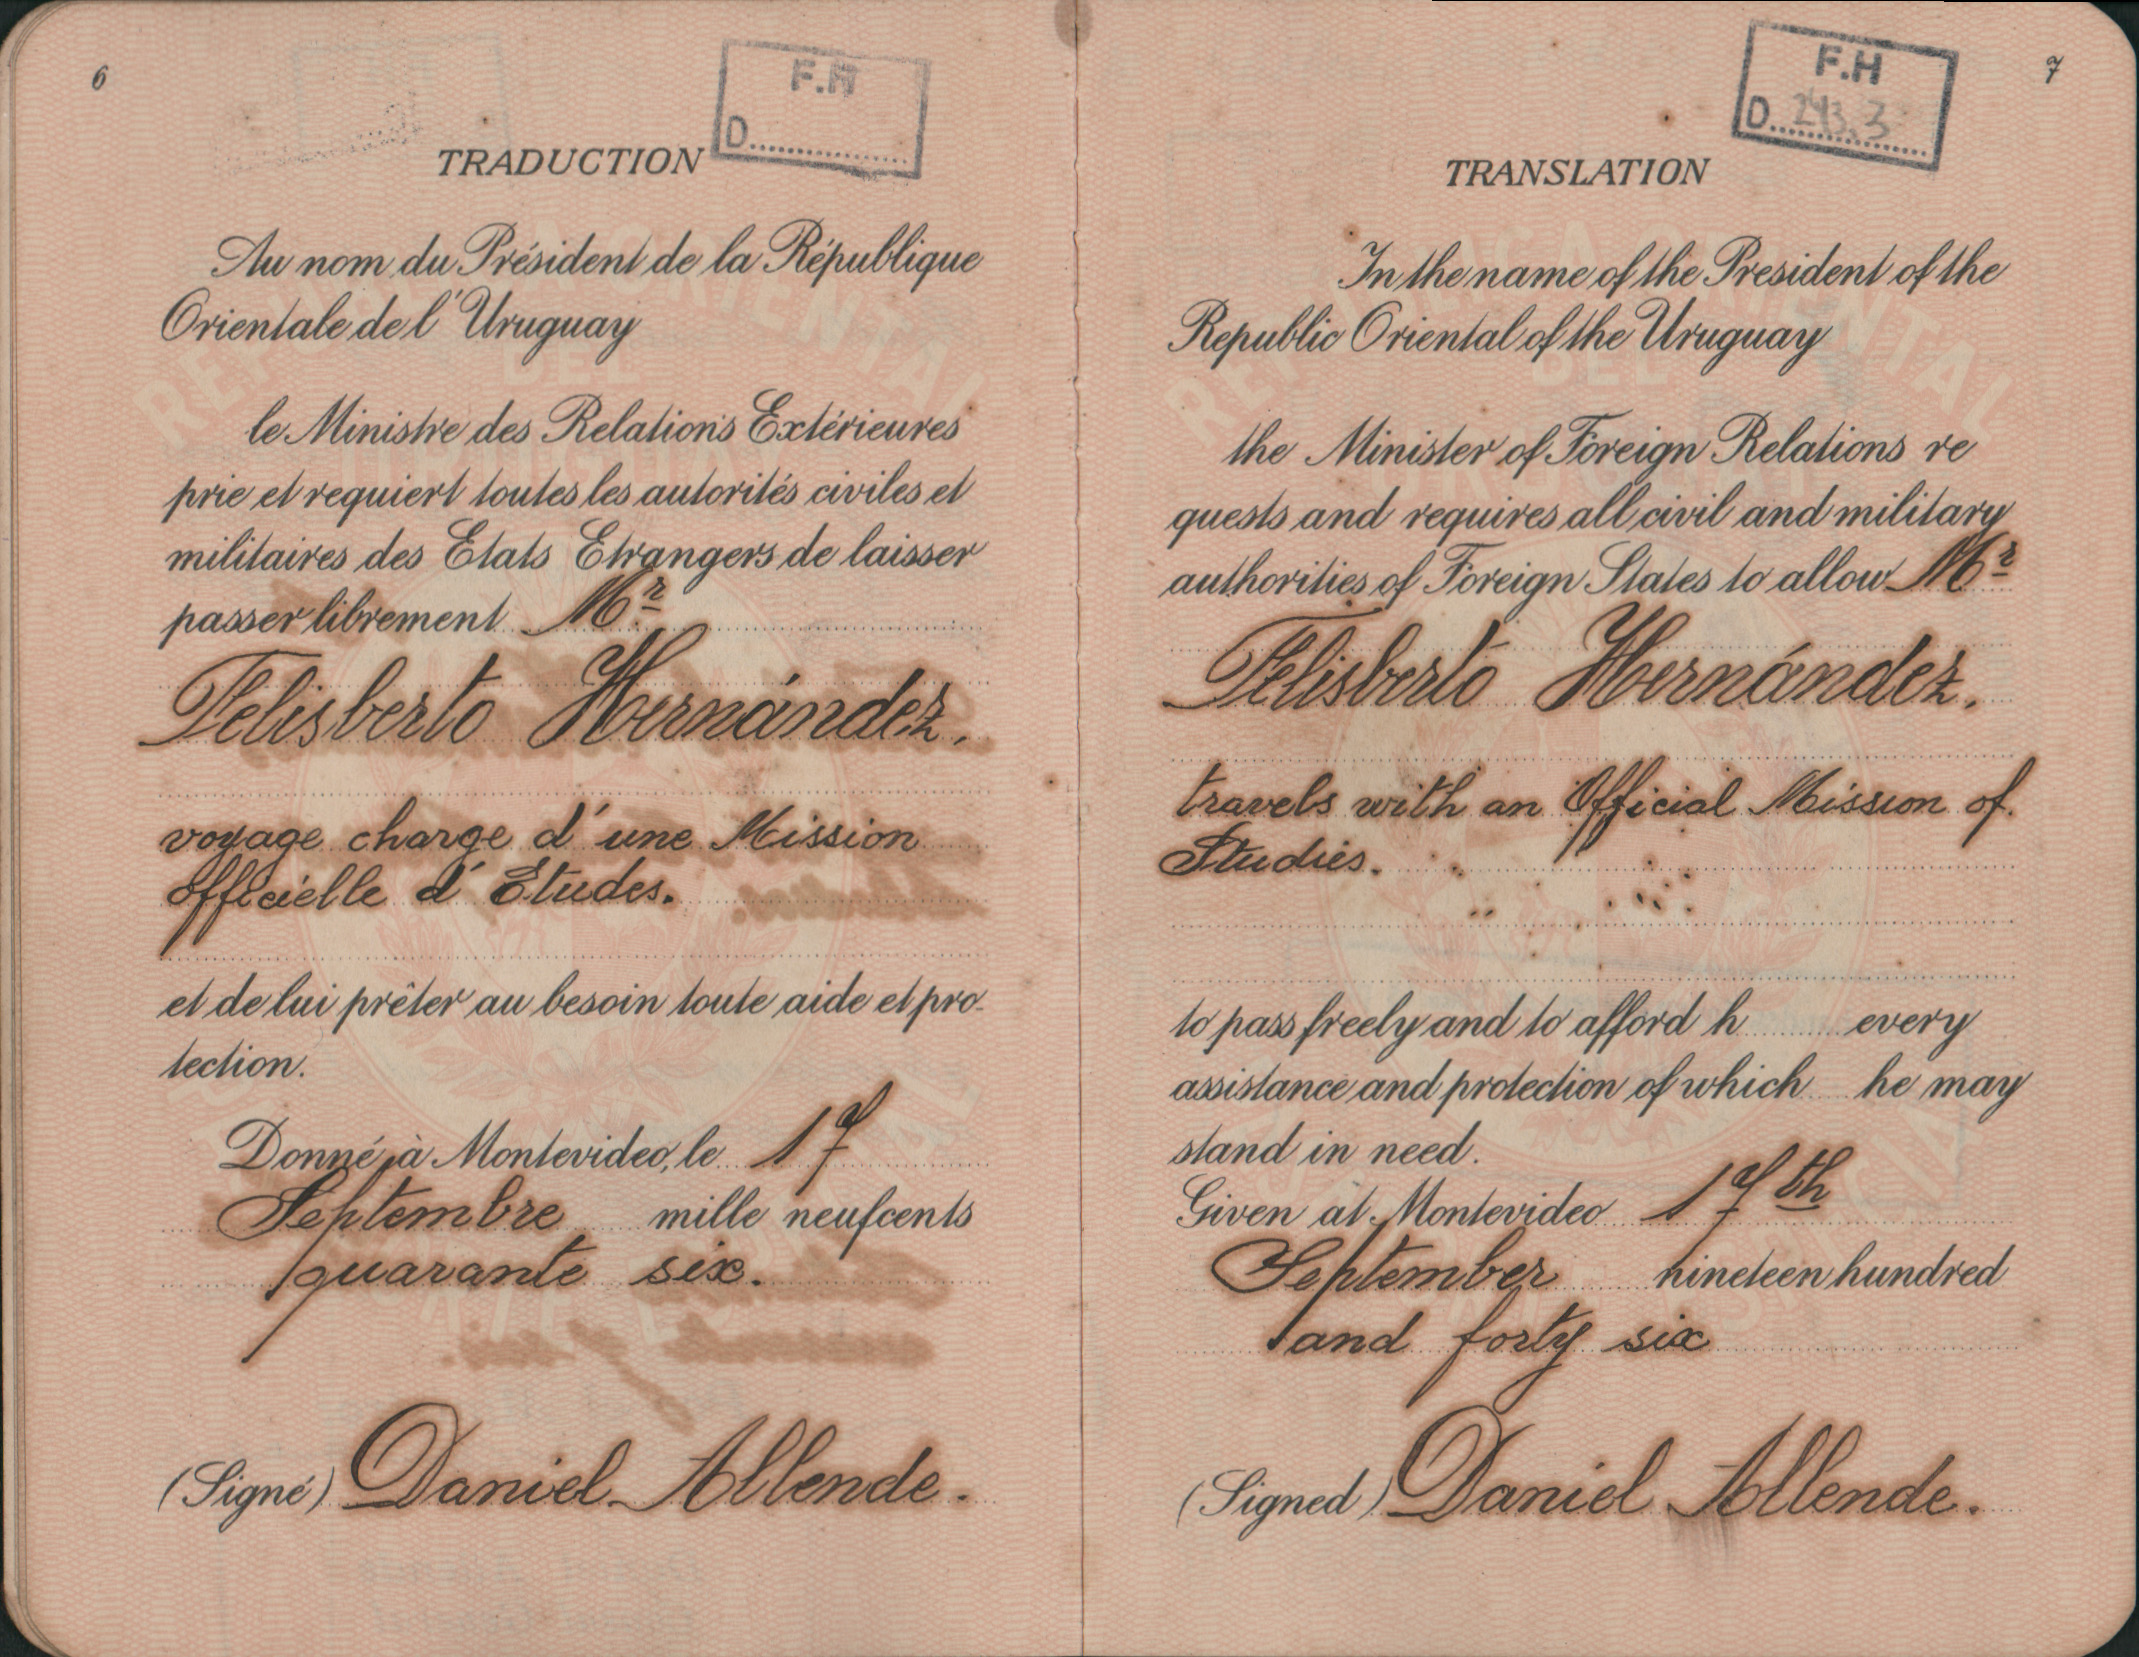 6
F.H
D
TRADUCTION
Au nom du Président de la République
Orientale de l'Uruguay
le Ministre des Relations Extérieures
prie et requiert toutes les autorités civiles et
militaires des Etats Etrangers de laisser
passer librement Mr
Felisberto Hernández.
voyage charge d'une Mission
officielle d'Etudes.
et de lui prêter au besoin toute aide et pro-
tection.
Donné à Montevideo, le 17
Septembre mille neufcents
quarante six.
(Signé) Daniel Allende.
7
F.H
D. 243.3
TRANSLATION
In the name of the President of the
Republic Oriental of the Uruguay
the Minister of Foreign Relations re
quests and requires all civil and military
authorities of Foreign States to allow Mr
Felisberto Hernández.
travels with an Official Mission of
Studies.
to pass freely and to afford h every
assistance and protection of which he may
stand in need.
Given at Montevideo 17th
September nineteen hundred
and forty six
(Signed) Daniel Allende.
REPUBLICA ORIENTAL
DEL
URUGUAY